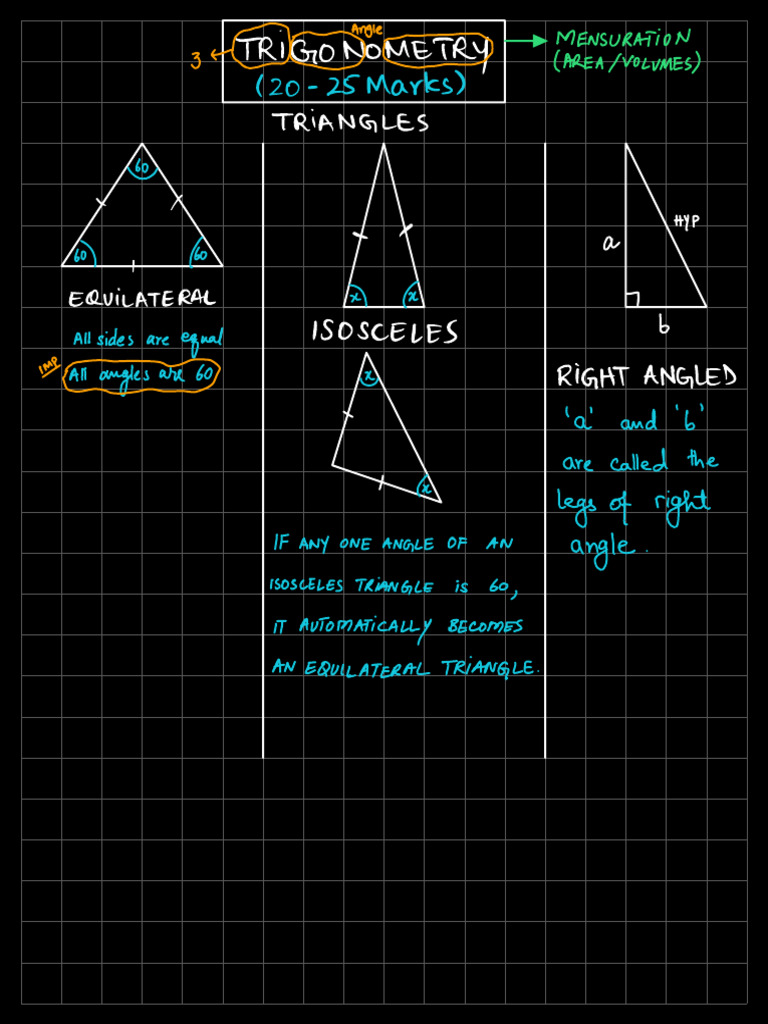 Angle
3 TRIGONOMETRY
(20 - 25 Marks)
MENSURATION
(AREA/VOLUMES)
TRIANGLES
60
60
60
EQUILATERAL
All sides are equal
IMP
All angles are 60
x
x
ISOSCELES
x
x
IF ANY ONE ANGLE OF AN
ISOSCELES TRIANGLE is 60,
IT AUTOMATICALLY BECOMES
AN EQUILATERAL TRIANGLE.
a
HYP
b
RIGHT ANGLED
'a' and 'b'
are called the
legs of right
angle.